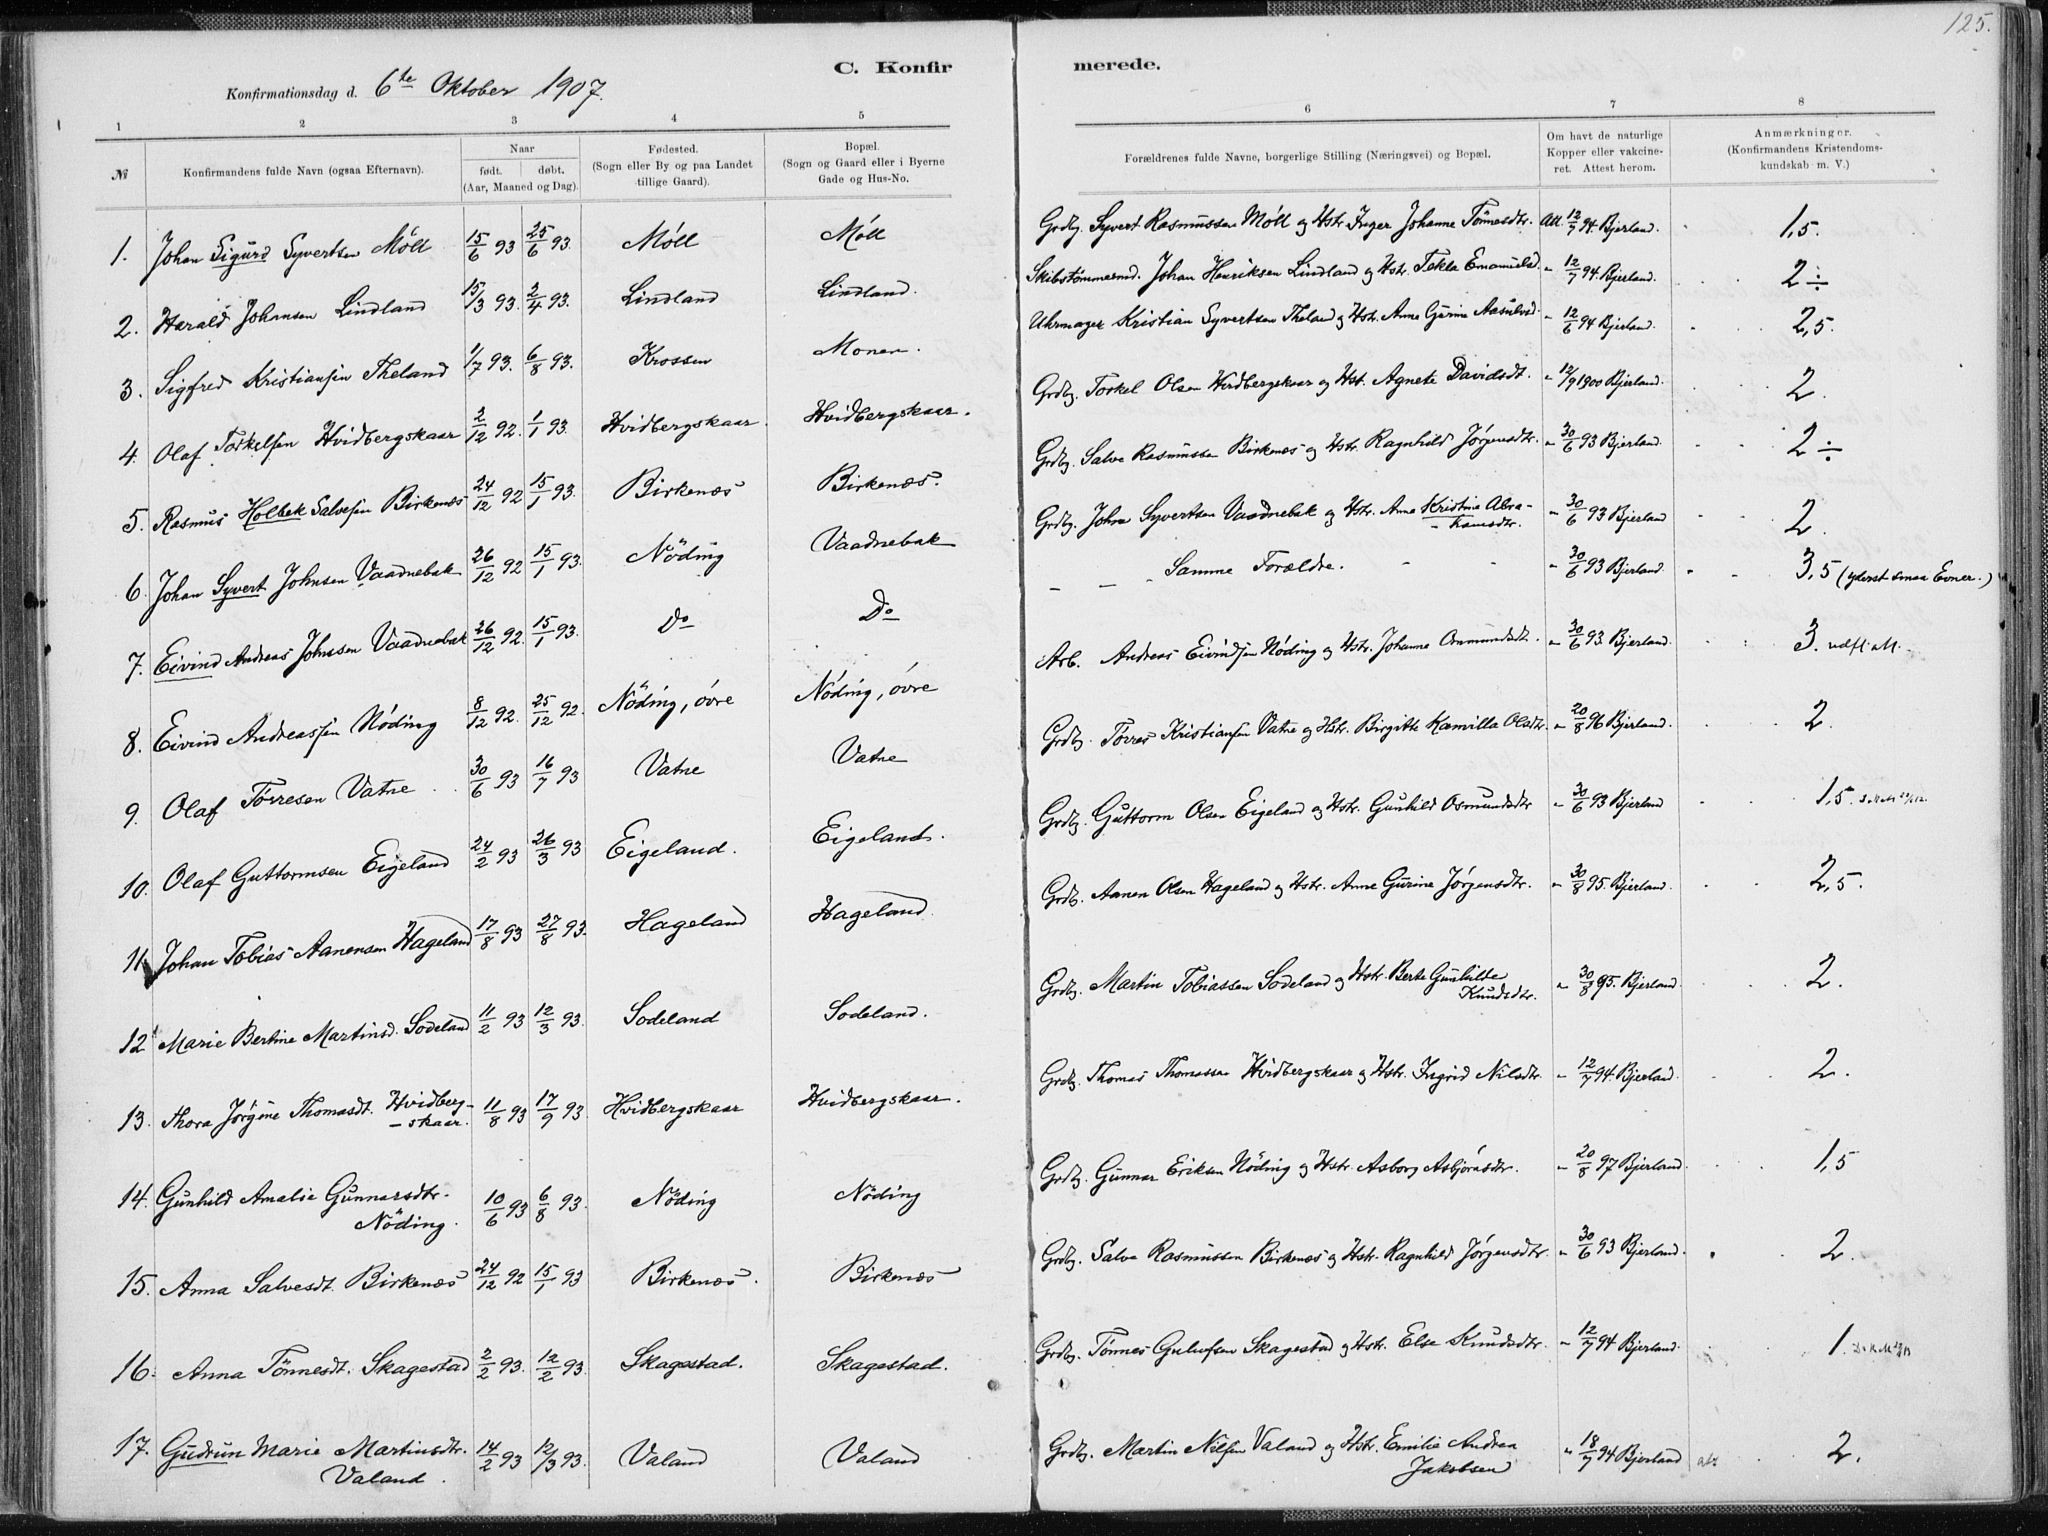 125.
C. Konfirmerede.
Konfirmationsdag d. 6te Oktober 1907.
1 2 3 4 5 6 7 8
№ Konfirmandens fulde Navn (ogsaa Efternavn). Naar født. døbt. (Aar, Maaned og Dag). Fødested. (Sogn eller By og paa Landet tillige Gaard). Bopæl. (Sogn og Gaard eller i Byerne Gade og Hus-No. Forældrenes fulde Navne, borgerlige Stilling (Næringsvei) og Bopæl. Om havt de naturlige Kopper eller vakcineret. Attest herom. Anmærkninger. (Konfirmandens Kristendomskundskab m. V.)
1. Johan Sigurd Syvertsen Möll 15/6 93 25/6 93. Möll Möll Grdbg. Syvert Rasmussen Möll og Hstr. Inger Johanne Tönnesdtr. Att. 12/7 94. Bjerland. 1,5.
2. Harald Johansen Lindland 15/3 93. 2/4 93. Lindland Lindland. Skibstømmermd. Johan Henriksen Lindland og Hstr. Tekla Emanuelsd. „ 12/7 94 Bjerland. 2 ÷
3. Sigfred Kristiansen Theland 1/7 93. 6/8 93. Krossen Monen. Uhrmager Kristian Syvertsen Theland og Hstr. Anne Gurine Aasulvsd. „ 12/6 94 Bjerland. 2,5.
4. Olaf Torkelsen Hvidbergskaar 2/12 92. 1/1 93. Hvidbergskaar. Hvidbergskaar. Grdbg. Torkel Olsen Hvidbergskaar og Hst. Agnete Davidsdt. „ 12/9 1900 Bjerland. 2.
5. Rasmus Holbek Salvesen Birkenæs 24/12 92 15/1 93. Birkenæs Birkenæs. Grdbg. Salve Rasmussen Birkenæs og Hstr. Ragnhild Jörgensdtr. „ 30/6 93 Bjerland. 2 ÷
6. Johan Syvert Johnsen Vaadnebak 26/12 92 15/1 93. Nöding Vaadnebak Grdbg. John Syvertsen Vaadnebak og Hstr. Anne Kristine Abrahamsdtr. „ 30/6 93 Bjerland 2.
7. Eivind Andreas Johnsen Vaadnebak 26/12 92. 15/1 93. Do Do – – Samme Forældre. „ 30/6 93 Bjerland. 3,5 (yderst smaa Evner.)
8. Eivind Andreassen Nöding 8/12 92. 25/12 92. Nöding, övre Nöding, övre Arb. Andreas Eivindsen Nöding og Hstr. Johanne Osmundsdt. „ 30/6 93. Bjerland. 3. udfl. att.
9. Olaf Törresen Vatne 30/6 93 16/7 93 Vatne Vatne Grdbg. Törres Kristiansen Vatne og Hstr. Birgitte Kamilla Olsdtr. „ 20/8 96 Bjerland. 2.
10. Olaf Guttormsen Eigeland 24/2 93 26/3 93 Eigeland. Eigeland. Grdbg. Guttorm Olsen Eigeland og Hstr. Gunhild Osmundsdtr „ 30/6 93 Bjerland 1,5.
11. Johan Tobias Aanensen Hageland 17/8 93 27/8 93. Hageland Hageland. Grdb. Aanen Olsen Hageland og Hstr. Anne Gurine Jörgensdtr. „ 30/8 95. Bjerland. 2,5.
12 Marie Bertine Martinsd. Sodeland 11/2 93 12/3 93. Sodeland Sodeland. Grdbg. Martin Tobiassen Sodeland og Hstr. Berte Gunhilde Knudsdtr. „ 30/8 95. Bjerland. 2.
13. Thora Jörgine Thomasdt. Hvidbergskaar. 11/8 93 17/9 93. Hvidbergskaar Hvidbergskaar. Grdbg. Thomas Thomassen Hvidbergskaar og Hstr. Ingrid Nilsdtr. „ 12/7 94. Bjerland. 2.
14. Gunhild Amalie Gunnarsdtr. Nöding. 10/6 93 6/8 93. Nöding Nöding Grdbg. Gunnar Eriksen Nöding og Hstr. Asborg Asbjörnsdtr. „ 20/8 97 Bjerland. 1,5
15. Anna Salvesdt. Birkenæs 24/12 92 15/1 93 Birkenæs. Birkenæs Grdbg. Salve Rasmussen Birkenæs og Hstr. Ragnhild Jörgensdtr. „ 30/6 93 Bjerland. 2.
16. Anna Tönnesdt. Skagestad 2/2 93. 12/2 93. Skagestad. Skagestad. Grdbg. Tönnes Gulufsen Skagestad og Hstr. Else Knudsdtr. „ 12/7 94 Bjerland. 1.
17. Gudrun Marie Martinsdtr. Valand. 14/2 93 12/3 93. Valand Valand Grdbg. Martin Nilsen Valand og Hstr. Emilie Andrea Jakobsen „ 18/7 94 Bjerland 2.